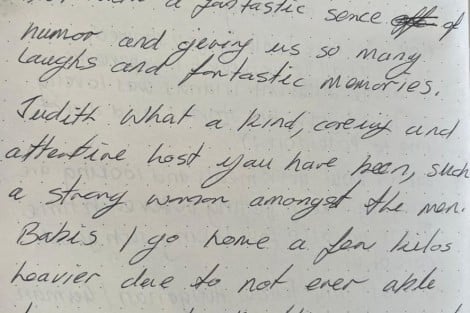 a fantastic sence of
humor and geving us so many
laughs and fantastic memories.
Judith What a kind, careing and
attentive host you have been, such
a strong woman amongst the men.
Babis I go home a few kilos
heavier due to not ever able